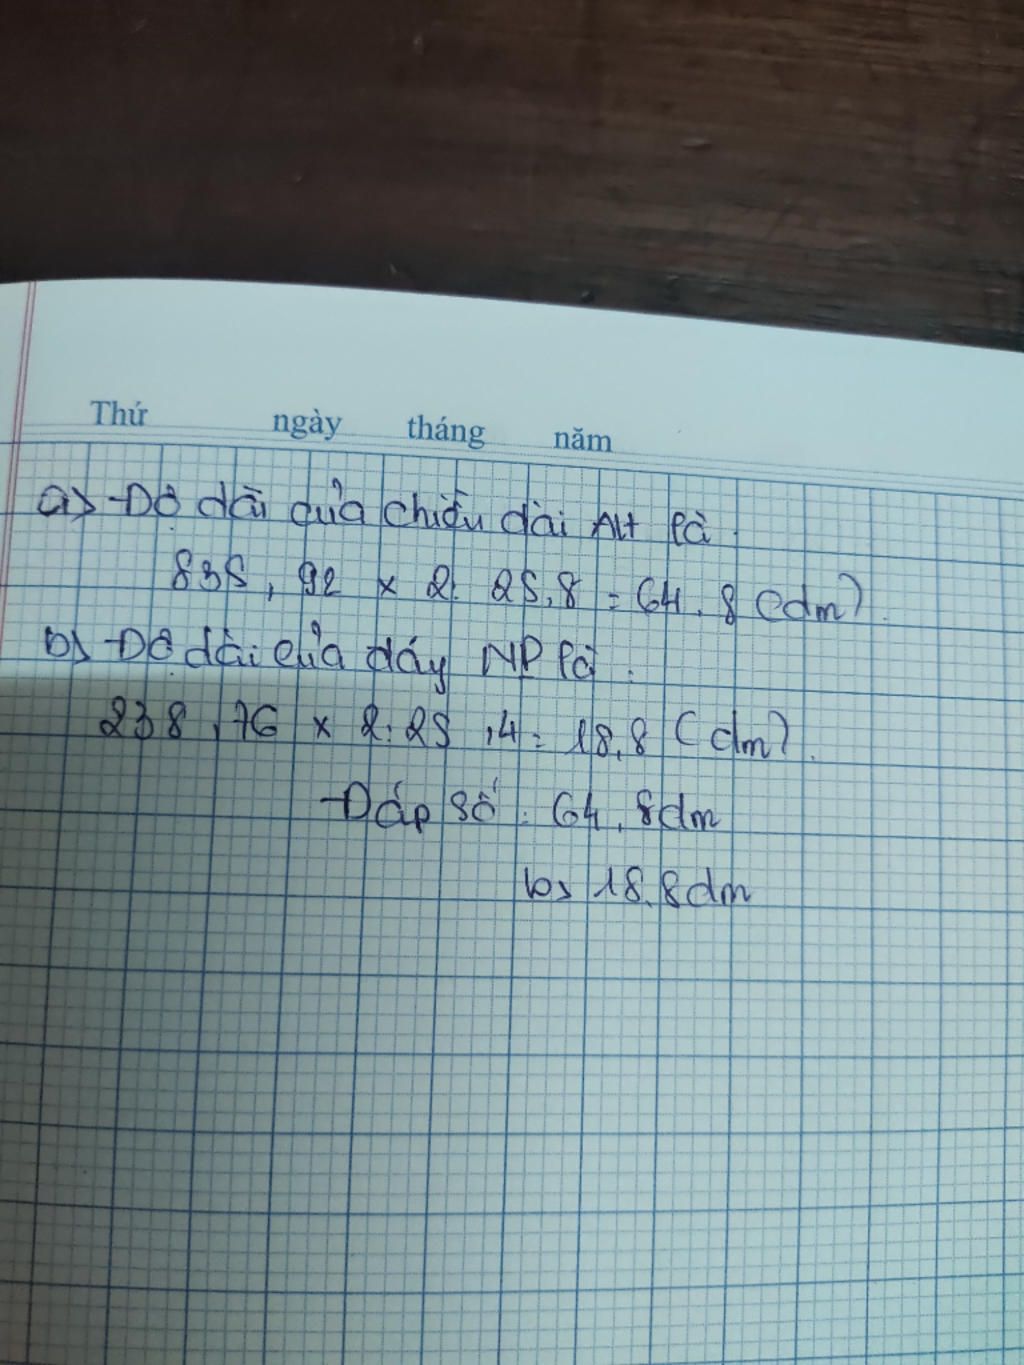 Thứ ngày tháng năm
a) Độ dài của chiều dài AH là
835,92 x 2: 25,8 = 64,8 (dm).
b) Độ dài của đáy NP là:
238,76 x 2: 25,4 = 18,8 (dm).
Đáp số: 64,8dm
b) 18,8dm